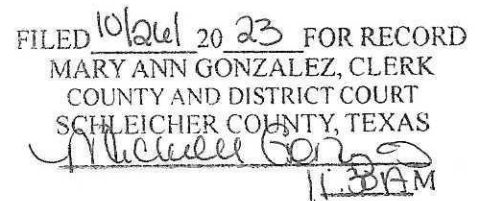 FILED 10/26/ 20 23 FOR RECORD
MARY ANN GONZALEZ, CLERK
COUNTY AND DISTRICT COURT
SCHLEICHER COUNTY, TEXAS
Michelle
AM